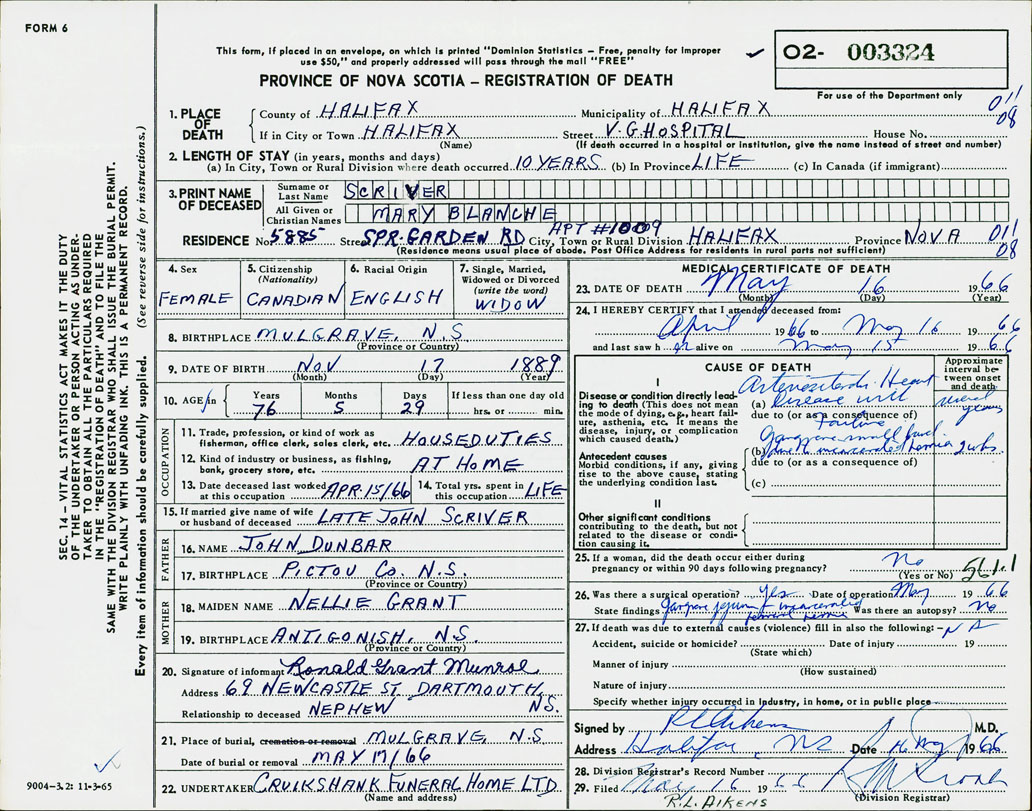 FORM 6
This form, if placed in an envelope, on which is printed "Dominion Statistics – Free, penalty for improper
use $50," and properly addressed will pass through the mail "FREE"
PROVINCE OF NOVA SCOTIA – REGISTRATION OF DEATH
O2- 003324
For use of the Department only
SEC. 14 – VITAL STATISTICS ACT MAKES IT THE DUTY
OF THE UNDERTAKER OR PERSON ACTING AS UNDER-
TAKER TO OBTAIN ALL THE PARTICULARS REQUIRED
IN THE "REGISTRATION OF DEATH" AND TO FILE THE
SAME WITH THE DIVISION REGISTRAR WHO SHALL ISSUE THE BURIAL PERMIT.
WRITE PLAINLY WITH UNFADING INK. THIS IS A PERMANENT RECORD.
Every item of information should be carefully supplied. (See reverse side for instructions.)
1. PLACE OF DEATH
County of HALIFAX Municipality of HALIFAX 011
If in City or Town HALIFAX Street V.G HOSPITAL House No. 08
(Name) (If death occurred in a hospital or institution, give the name instead of street and number)
2. LENGTH OF STAY (in years, months and days)
(a) In City, Town or Rural Division where death occurred 10 YEARS (b) In Province LIFE (c) In Canada (if immigrant)
3. PRINT NAME OF DECEASED
Surname or Last Name SCRIVER
All Given or Christian Names MARY BLANCHE
APT #1009
RESIDENCE No. 5885 Street SPR. GARDEN RD City, Town or Rural Division HALIFAX Province NOVA 011
(Residence means usual place of abode. Post Office Address for residents in rural parts not sufficient) 08
4. Sex FEMALE
5. Citizenship (Nationality) CANADIAN
6. Racial Origin ENGLISH
7. Single, Married, Widowed or Divorced (write the word) WIDOW
8. BIRTHPLACE MULGRAVE, N.S.
(Province or Country)
9. DATE OF BIRTH NOV 17 1889
(Month) (Day) (Year)
10. AGE in Years Months Days If less than one day old
76 5 29 hrs. or min.
OCCUPATION
11. Trade, profession, or kind of work as
fisherman, office clerk, sales clerk, etc. HOUSEDUTIES
12. Kind of industry or business, as fishing,
bank, grocery store, etc. AT HOME
13. Date deceased last worked at this occupation APR. 15/66
14. Total yrs. spent in this occupation LIFE
15. If married give name of wife
or husband of deceased LATE JOHN SCRIVER
FATHER
16. NAME JOHN DUNBAR
17. BIRTHPLACE PICTOU CO. N.S.
(Province or Country)
MOTHER
18. MAIDEN NAME NELLIE GRANT
19. BIRTHPLACE ANTIGONISH, N.S.
(Province or Country)
20. Signature of informant Ronald Grant Munroe
Address 69 NEWCASTLE ST. DARTMOUTH,
Relationship to deceased NEPHEW N.S.
21. Place of burial, cremation or removal MULGRAVE, N.S
Date of burial or removal MAY 17/66
22. UNDERTAKER CRUIKSHANK FUNERAL HOME LTD
(Name and address)
9004-3.2: 11-3-65
MEDICAL CERTIFICATE OF DEATH
23. DATE OF DEATH May 16 1966
(Month) (Day) (Year)
24. I HEREBY CERTIFY that I attended deceased from:
April 1966 to May 16 1966
and last saw her alive on May 15th 1966
CAUSE OF DEATH
Approximate interval between onset and death
I
Disease or condition directly leading to death (This does not mean the mode of dying, e.g., heart failure, asthenia, etc. It means the disease, injury, or complication which caused death.)
(a) Heart Disease with several years
due to (or as a consequence of)
Failure
Antecedent causes
Morbid conditions, if any, giving rise to the above cause, stating the underlying condition last.
(b) Gangrene small bowel
incarcerated hernia 2 wks.
due to (or as a consequence of)
(c)
II
Other significant conditions contributing to the death, but not related to the disease or condition causing it.
25. If a woman, did the death occur either during
pregnancy or within 90 days following pregnancy? No 561.1
(Yes or No)
26. Was there a surgical operation? yes Date of operation May 1966
State findings Gangrene jejunum incarcerated femoral hernia Was there an autopsy? No
27. If death was due to external causes (violence) fill in also the following: – NA
Accident, suicide or homicide? Date of injury 19
(State which)
Manner of injury
(How sustained)
Nature of injury
Specify whether injury occurred in industry, in home, or in public place
Signed by RL Aikens M.D.
Address Halifax, NS Date 16 May 1966
28. Division Registrar's Record Number
29. Filed May 16 1966
R.L. AIKENS (Division Registrar)